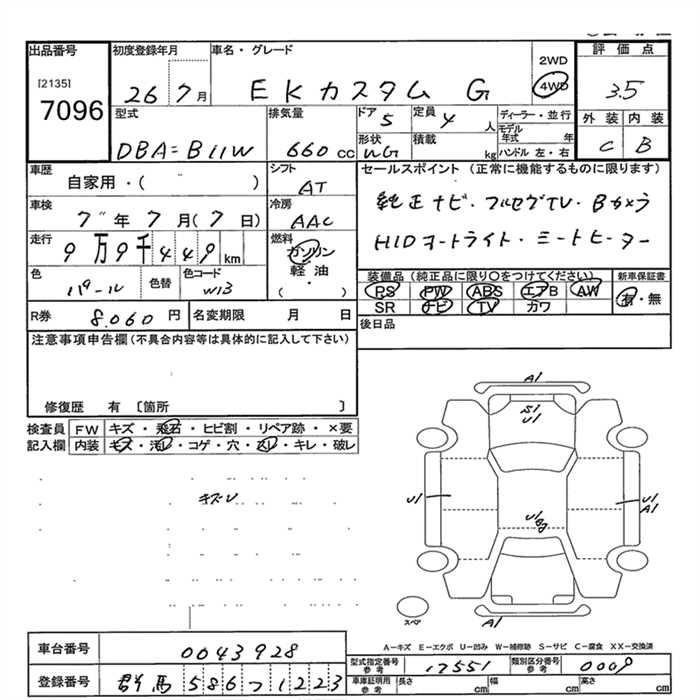 出品番号 初度登録年月 車名・グレード 評価点
[2135]
7096
26 7月 EKカスタム G 2WD 4WD 3.5
型式 排気量 ドア 定員 ディーラー・並行 外装 内装
DBA=B11W 660cc 5 4人 モデル年式 年
形状 積載 kg ハンドル 左・右 C B
車歴 シフト セールスポイント(正常に機能するものに限ります)
自家用・( ) AT
車検 冷房 純正ナビ・フルセグTV・Bカメラ
7年7月(7日) AAC
走行 燃料 HIDオートライト・ミートヒーター
9万9千449km ガソリン
軽・油
( )
色 色替 色コード 装備品(純正品に限り○をつけてください) 新車保証書
パール W13 PS PW ABS エアB AW 有・無
SR ナビ TV カワ
R券 8.060円 名変期限 月 日 後日品
注意事項申告欄(不具合内容等は具体的に記入して下さい)
修復歴 有 〔箇所 〕
検査員 FW キズ・飛石・ヒビ割・リペア跡・×要
記入欄 内装 キズ・汚レ・コゲ・穴・スレ・キレ・破レ
キズU
A1
S1
U1
U1
U1
A1
A1
スペア
A-キズ E-エクボ U-凹み W-補修跡 S-サビ C-腐食 XX-交換済
車台番号 0043928
型式指定番号 参考 17551 類別区分番号 参考 0009
登録番号 群馬 586 フ 1223
車庫証明用 参考 長さ cm 幅 cm 高さ cm